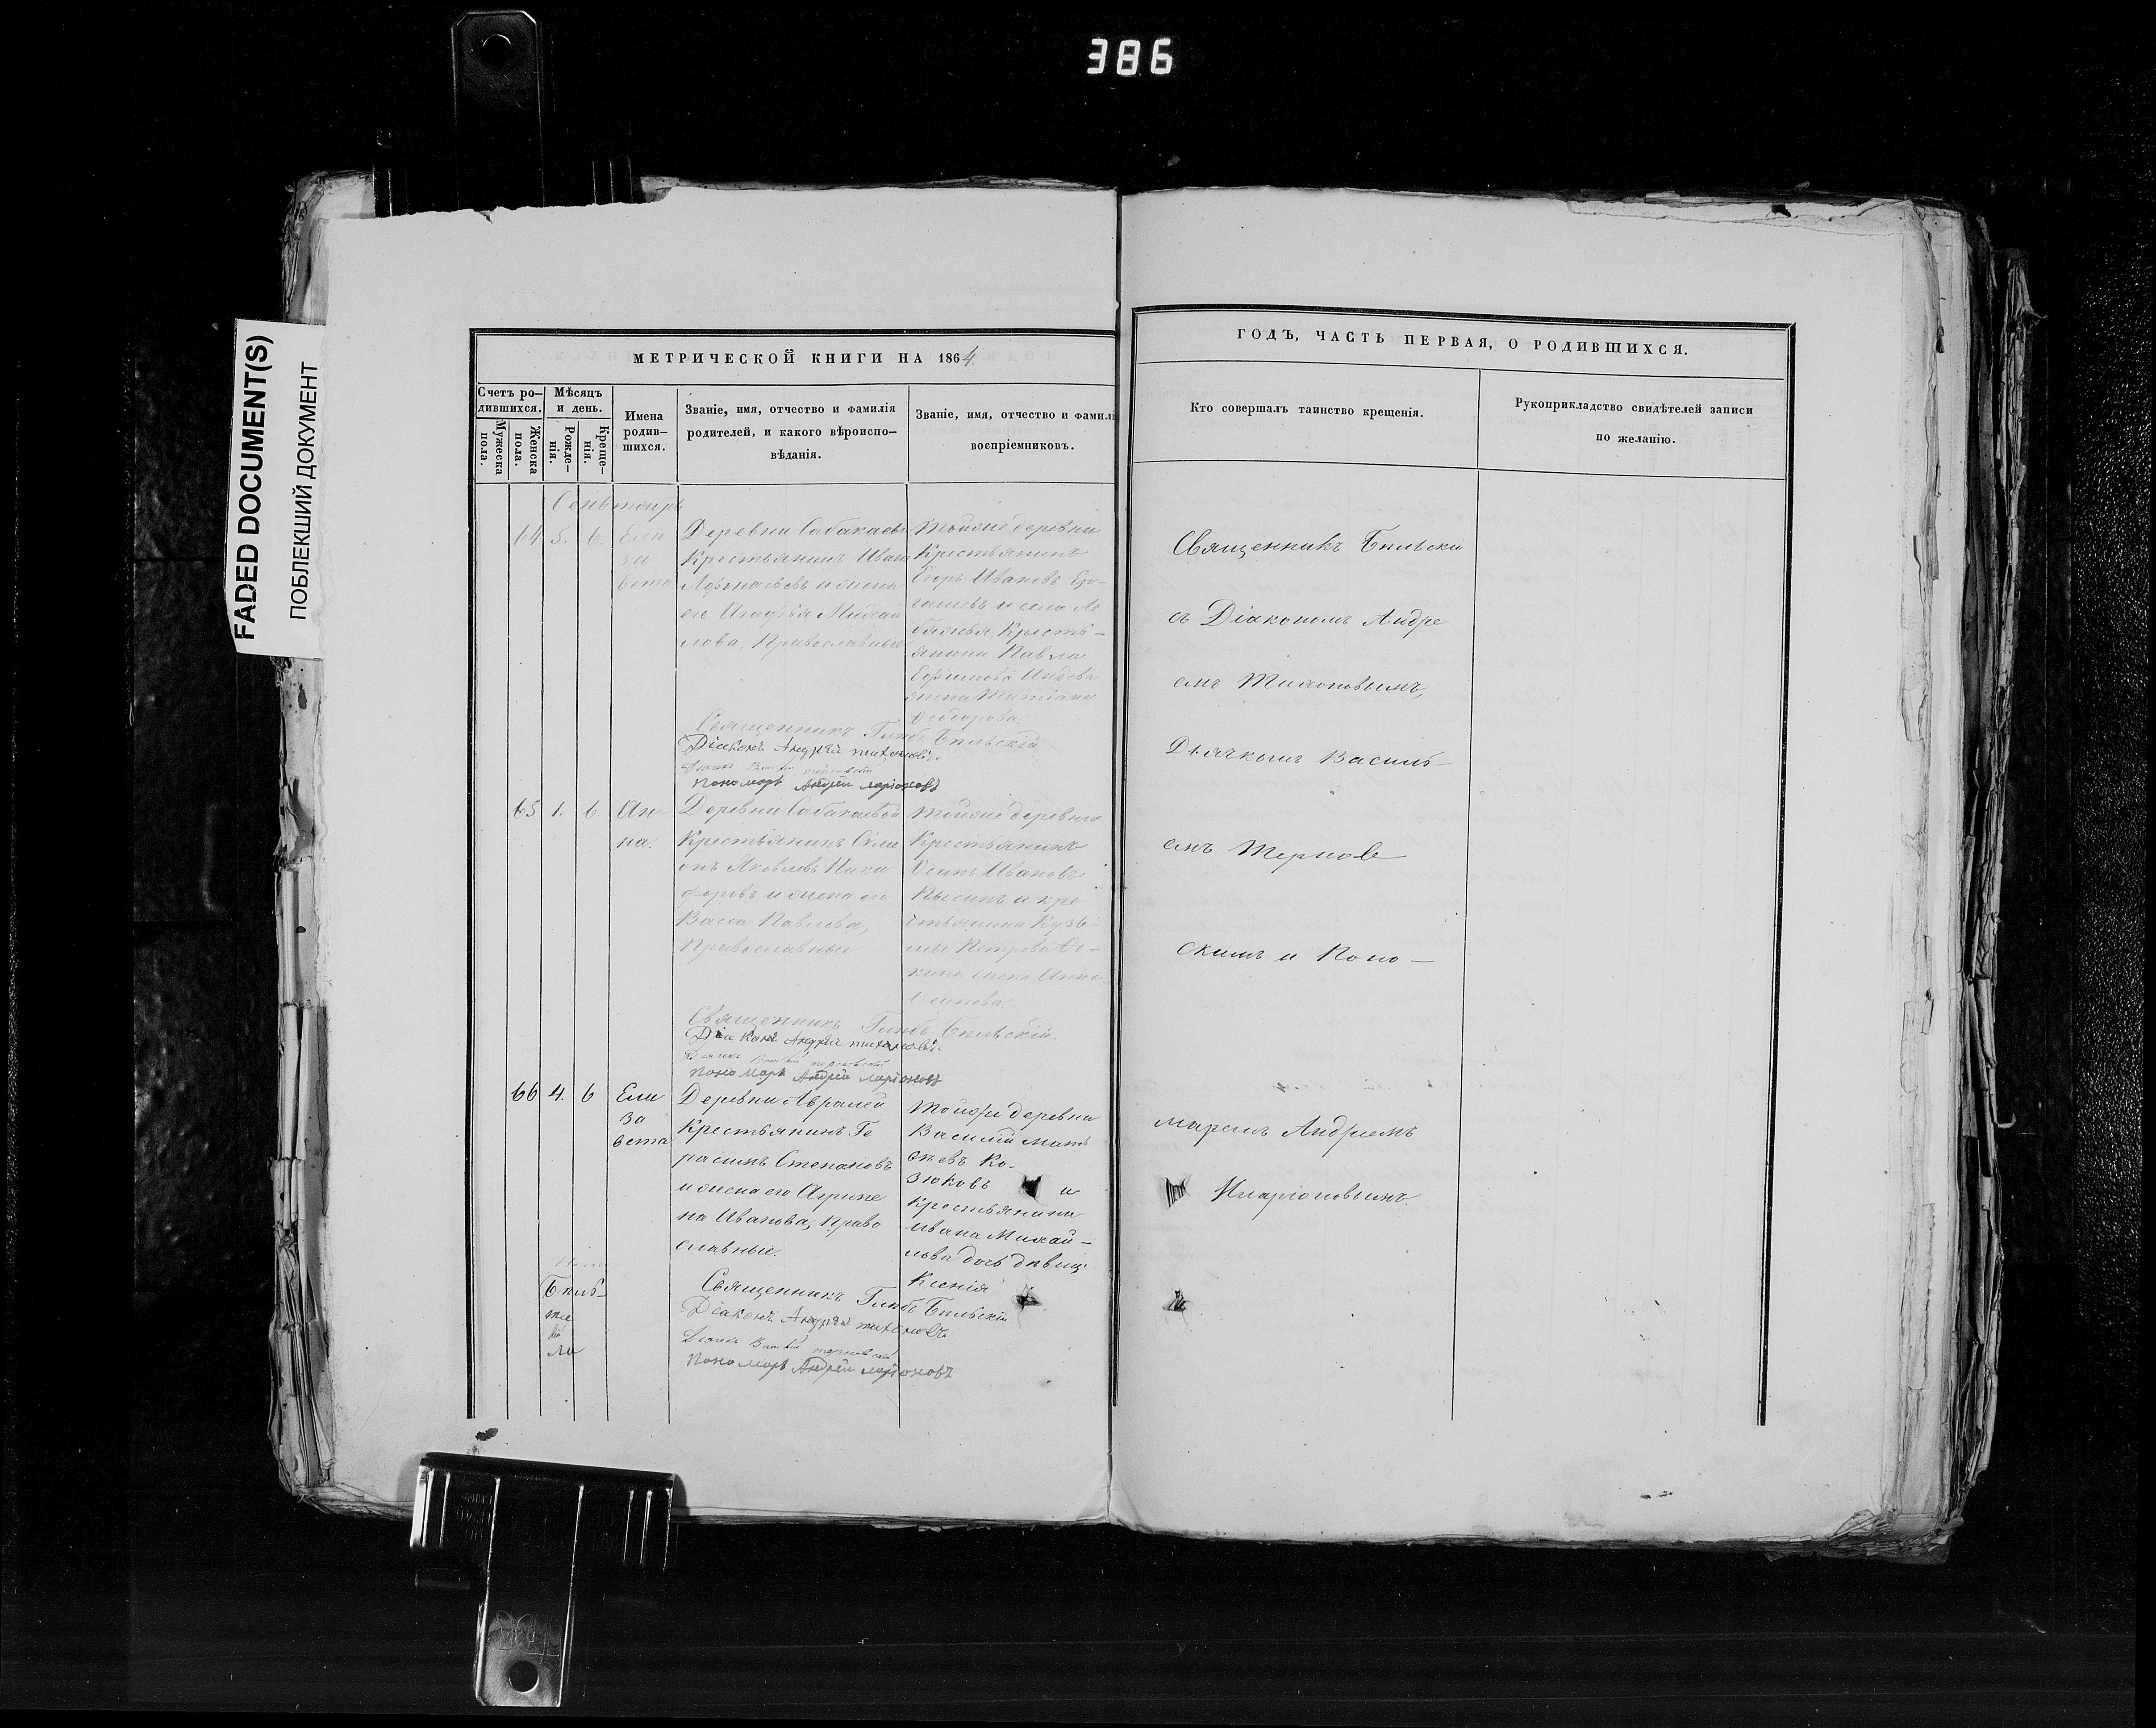 386
FADED DOCUMENT(S)
ПОБЛЕКШИЙ ДОКУМЕНТ
МЕТРИЧЕСКОЙ КНИГИ НА 1864
Счетъ ро–
дившихся.
Мѣсяцъ
и день.
Мужеска
пола.
Женска
пола.
Рожде–
нія.
Креще–
нія.
Имена
родив–
шихся.
Званіе, имя, отчество и фамилія
родителей, и какого вѣроиспо–
вѣданія.
Званіе, имя, отчество и фамилі
воспріемниковъ.
Сентябрь
64 5. 6.
Ели
за
вета
Деревни Сабакаевы
Крестьянинъ Иванъ
Афонасьевъ и жена
его Агафья Михай
лова, Православные
Тойже деревни
Крестьянинъ
Егоръ Ивановъ
и села
Кресть–
янина Павла
жена Татіана
Ѳедорова.
Священникъ Глѣбъ Бѣльскій
Діаконъ Андрей Тихоновъ
Дьячекъ Василій Терновскій
Пономарь Андрей Ларіоновъ
65 1. 6
Ан
на.
Деревни Сабакаевой
Крестьянинъ Симе
онъ Яковлевъ Ники
форовъ и жена его
Васса Павлова,
Православные
Тойже деревни
Крестьянинъ
Осипъ Ивановъ
и кре
стьянина Кузь
мы Петрова
жена Анна
Осипова.
Священникъ Глѣбъ Бѣльскій.
Діаконъ Андрей Тихоновъ
Дьячекъ Василій Терновскій
Пономарь Андрей Ларіоновъ
66 4. 6
Ели
за
вета
Деревни Авралей
Крестьянинъ Ге
расимъ Степановъ
и жена его Агрипе
на Иванова, Право
славные.
Тойже деревни
Василій Матѣ
Ко–
зюковъ и
Крестьянина
Ивана Михай–
лова дочь дѣвица
Ксенія
Священникъ Глѣбъ Бѣльскій
Діаконъ Андрей Тихоновъ
Дьячекъ Василій Терновскій
Пономарь Андрей Ларіоновъ
ГОДЪ, ЧАСТЬ ПЕРВАЯ, О РОДИВШИХСЯ.
Кто совершалъ таинство крещенія.
Рукоприкладство свидѣтелей записи
по желанію.
Священникъ Бѣльскій
съ Діакономъ Андре
емъ Тихоновымъ,
Дьячкомъ Василь–
емъ Терновс
скимъ и Поно–
маремъ Андреемъ
Иларіоновымъ.